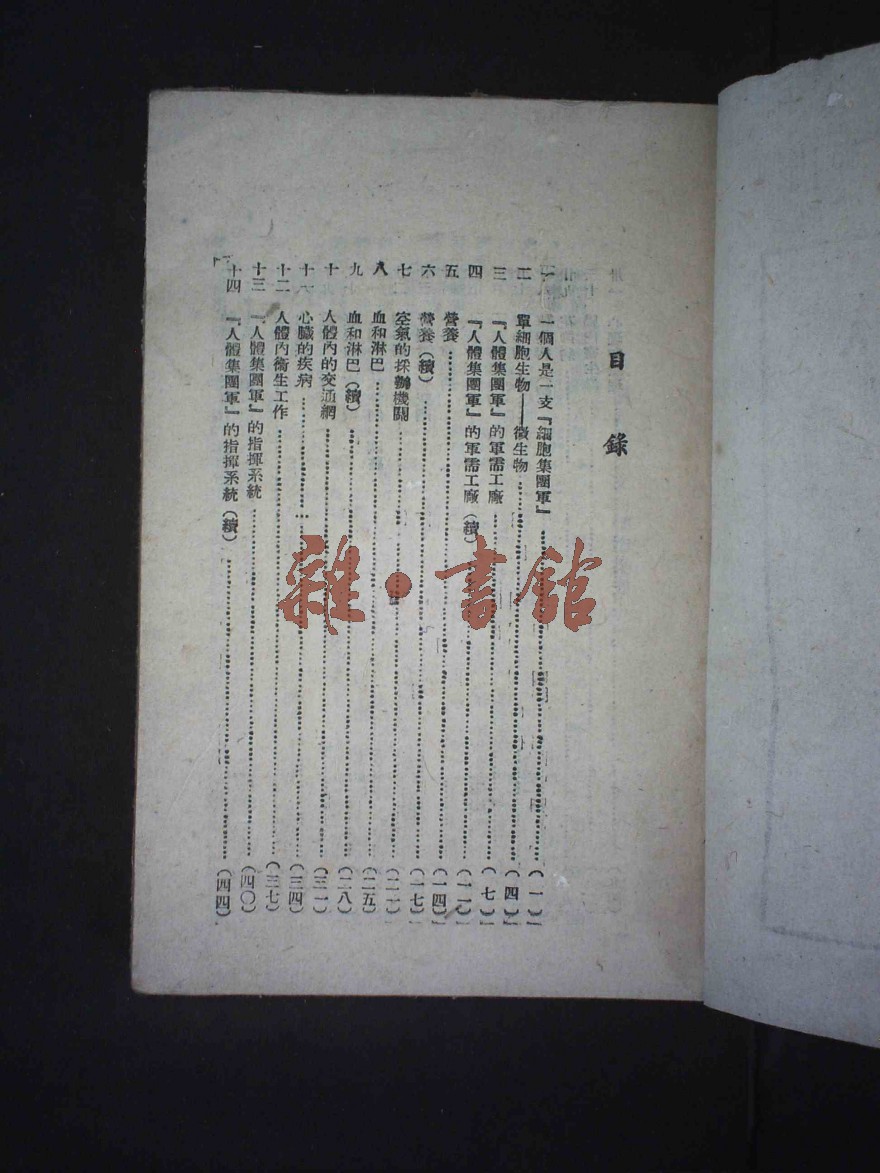 目錄
一 一個人是一支『細胞集團軍』……(一)
二 單細胞生物——微生物……(四)
三 『人體集團軍』的軍需工廠……(七)
四 『人體集團軍』的軍需工廠(續)……(一一)
五 營養……(一四)
六 營養(續)……(一七)
七 空氣的採辦機關……(二一)
八 血和淋巴……(二五)
九 血和淋巴(續)……(二八)
十 人體內的交通網……(三一)
十一 心臟的疾病……(三四)
十二 人體內衞生工作……(三七)
十三 『人體集團軍』的指揮系統……(四〇)
十四 『人體集團軍』的指揮系統(續)……(四四)
雜·書館